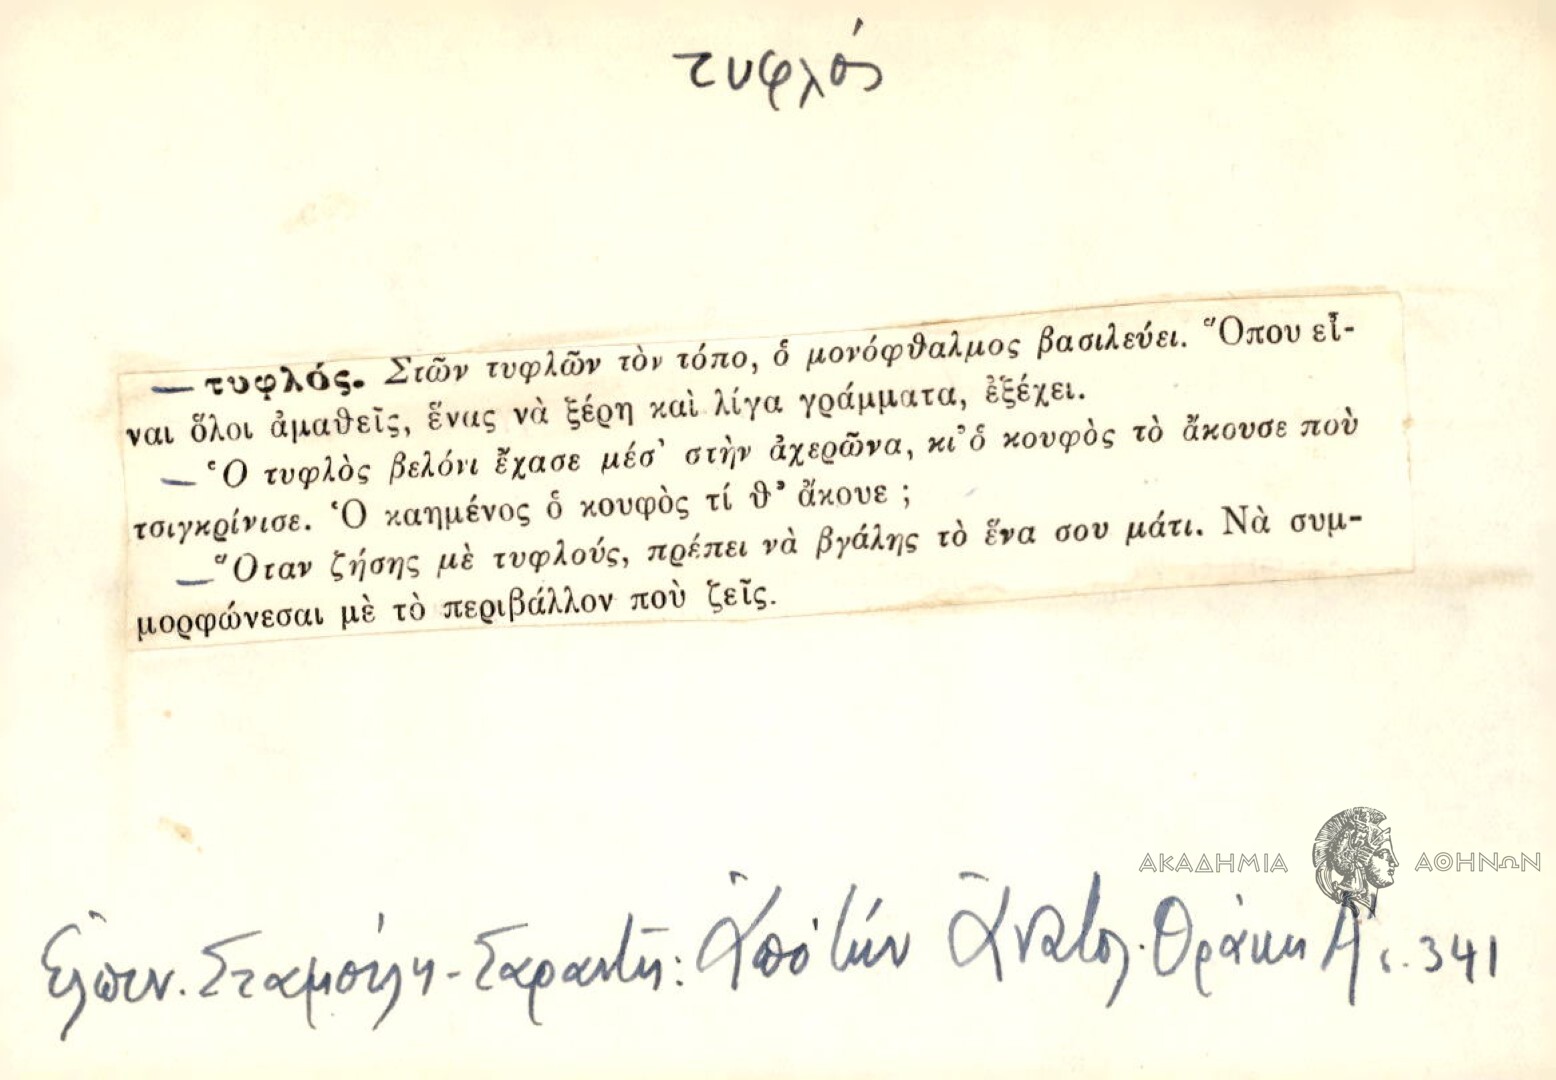 τυφλός
— τυφλός. Στῶν τυφλῶν τὸν τόπο, ὁ μονόφθαλμος βασιλεύει. Ὅπου εἶ-
ναι ὅλοι ἀμαθεῖς, ἕνας νὰ ξέρη καὶ λίγα γράμματα, ἐξέχει.
— Ὁ τυφλὸς βελόνι ἔχασε μέσ' στὴν ἀχερῶνα, κι' ὁ κουφὸς τὸ ἄκουσε ποὺ
τσιγκρίνισε. Ὁ καημένος ὁ κουφὸς τί θ' ἄκουε ;
— Ὅταν ζήσης μὲ τυφλούς, πρέπει νὰ βγάλης τὸ ἕνα σου μάτι. Νὰ συμ-
μορφώνεσαι μὲ τὸ περιβάλλον ποὺ ζεῖς.
ΑΚΑΔΗΜΙΑ ΑΘΗΝΩΝ
Ἐλπιν. Σταμούλη - Σαραντῆ: Ἀπὸ τὴν Ἀνατολ. Θράκη Α' σ. 341